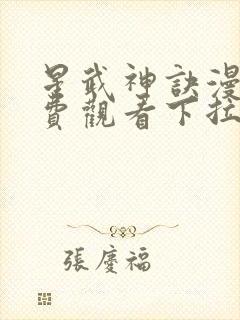 星武神訣漫
費觀看下拉
張慶福